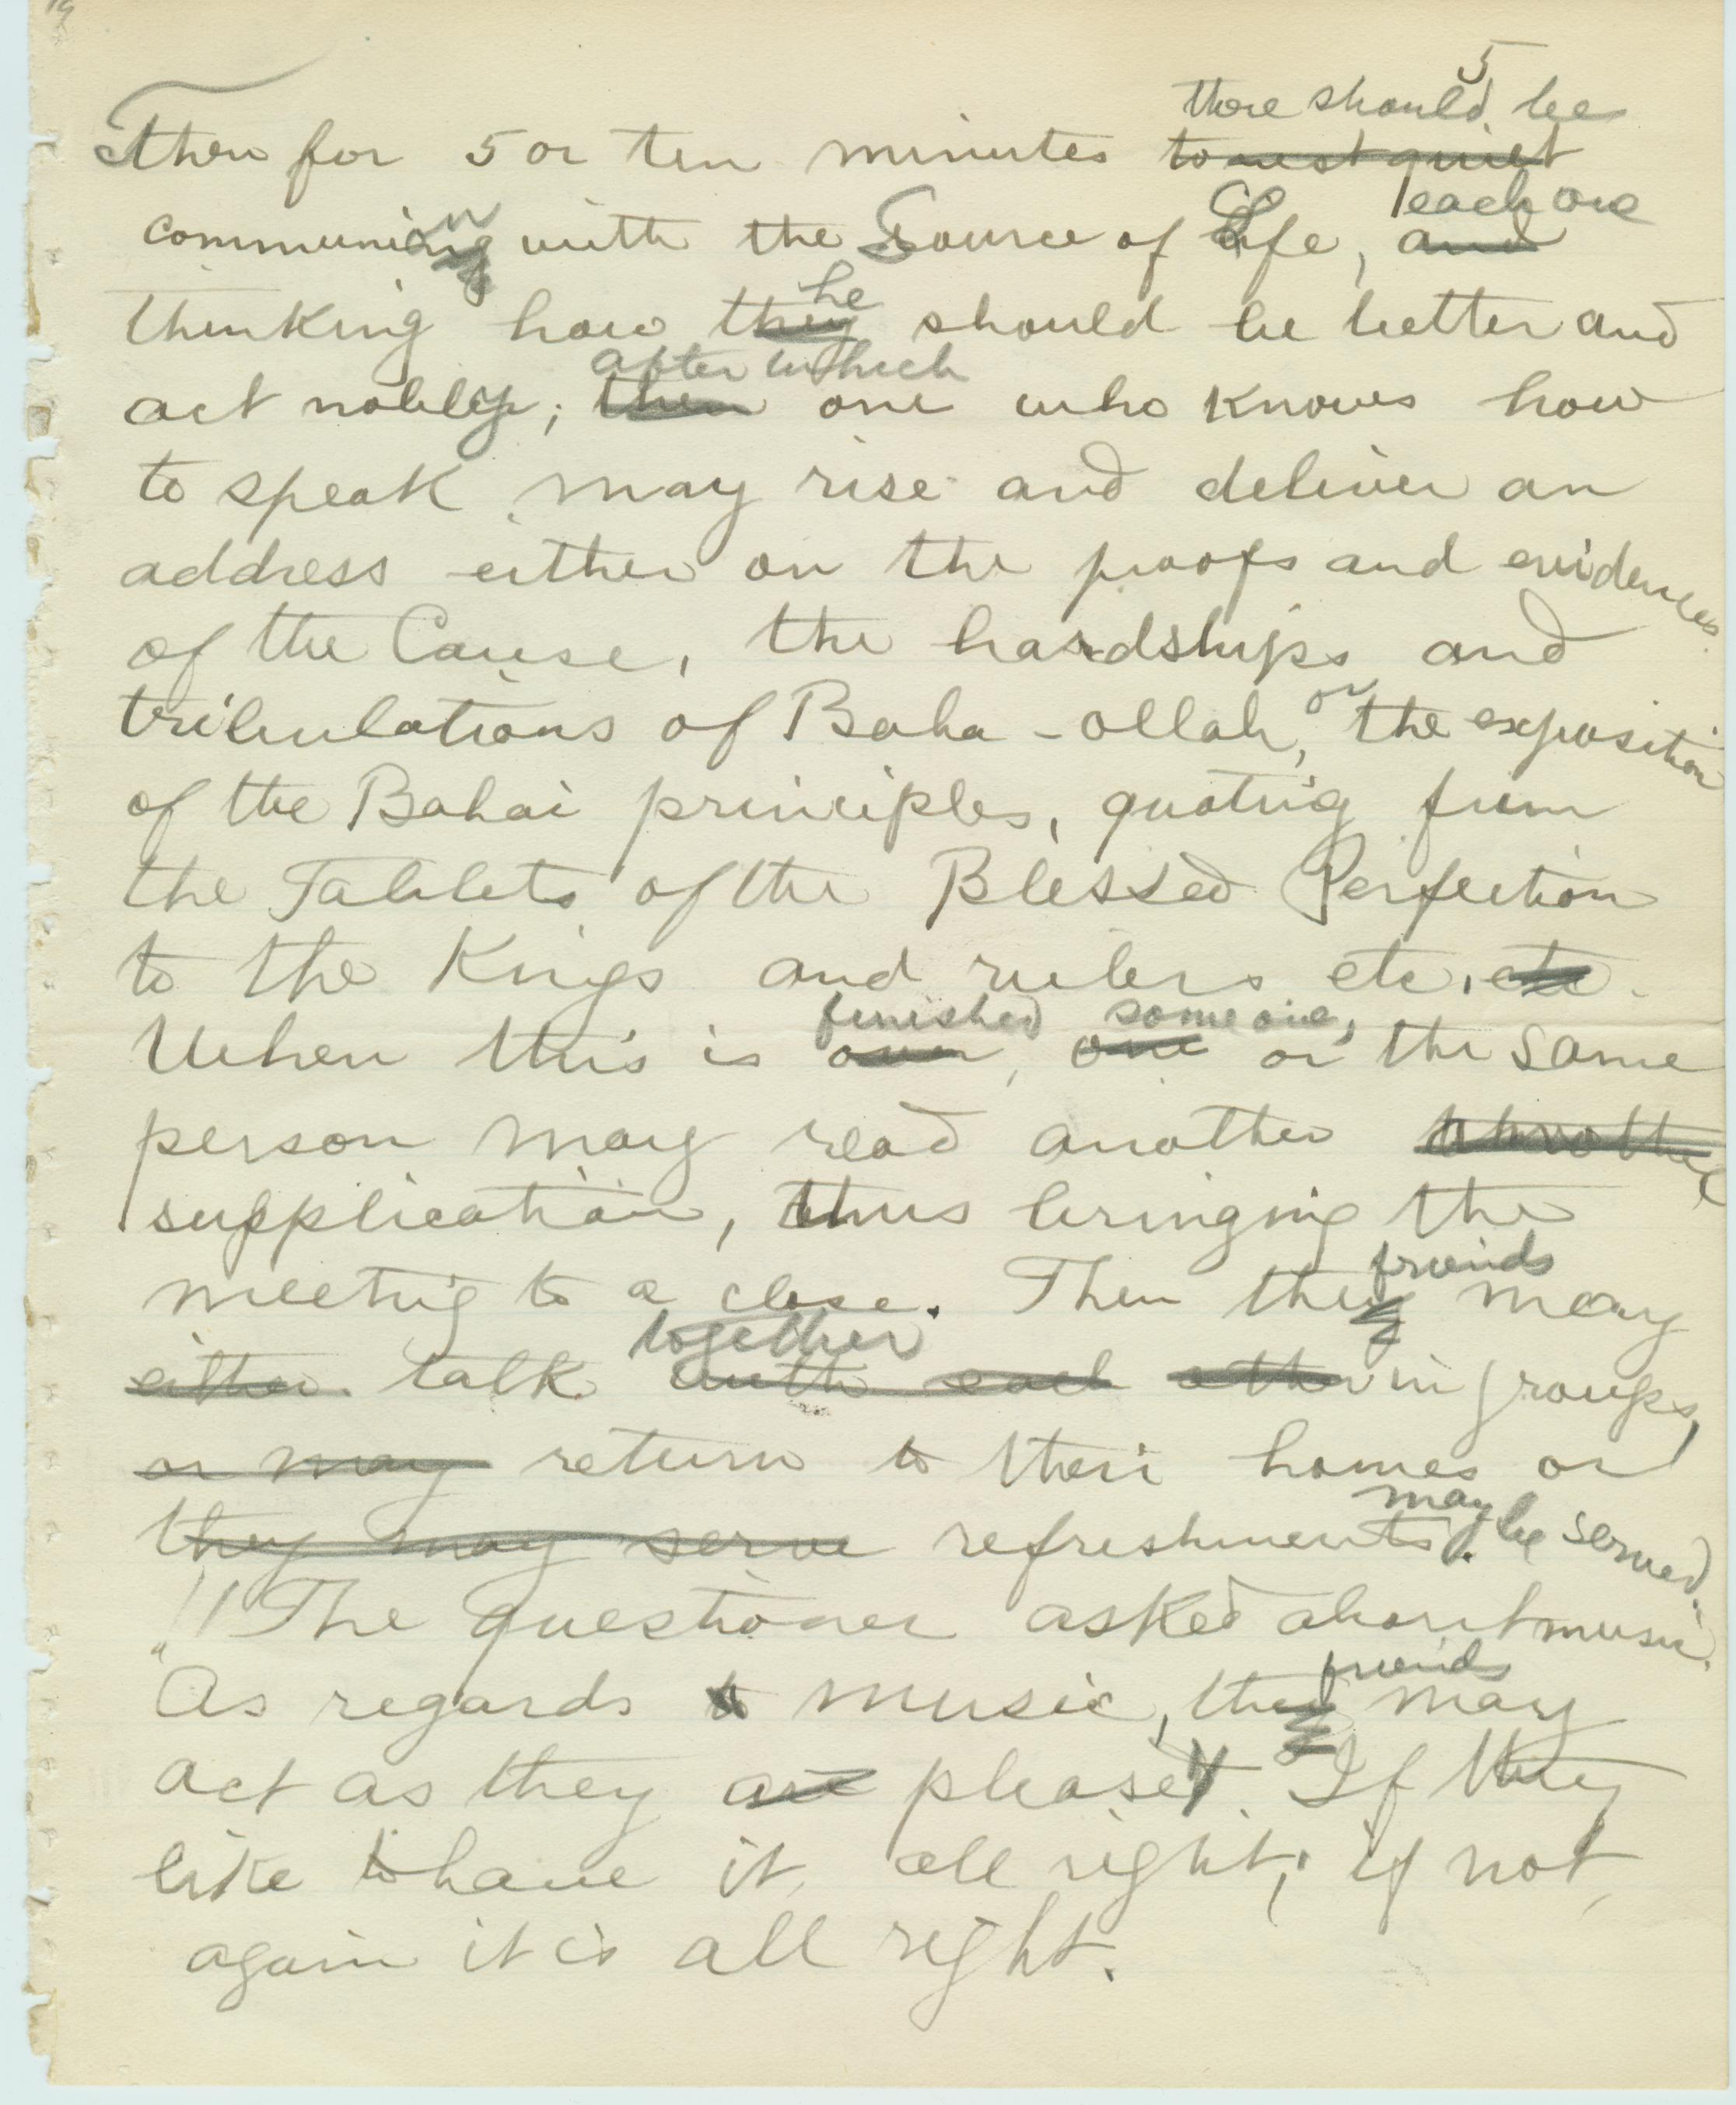 5
there should be
Then for 5 or ten minutes to rest quiet
each one
communion with the Source of Life, and
he
thinking how they should be better and
after which
act nobly; then one who knows how
to speak may rise and deliver an
address either on the proofs and evidences
of the Cause, the hardships and
or
tribulations of Baha-ollah, the exposition
of the Bahai principles, quoting from
the Tablets of the Blessed Perfection
to the Kings and rulers etc, etc.
finished someone,
When this is over, one or the same
person may read another another
supplication, thus bringing the
friends
meeting to a close. Then they may
together
either talk with each other in groups,
or may return to their homes or
may be served.
they may serve refreshments.
"The questioner asked about music.
friends
"As regards to music, they may
act as they are pleased. If they
like to have it, all right; if not,
again it is all right.